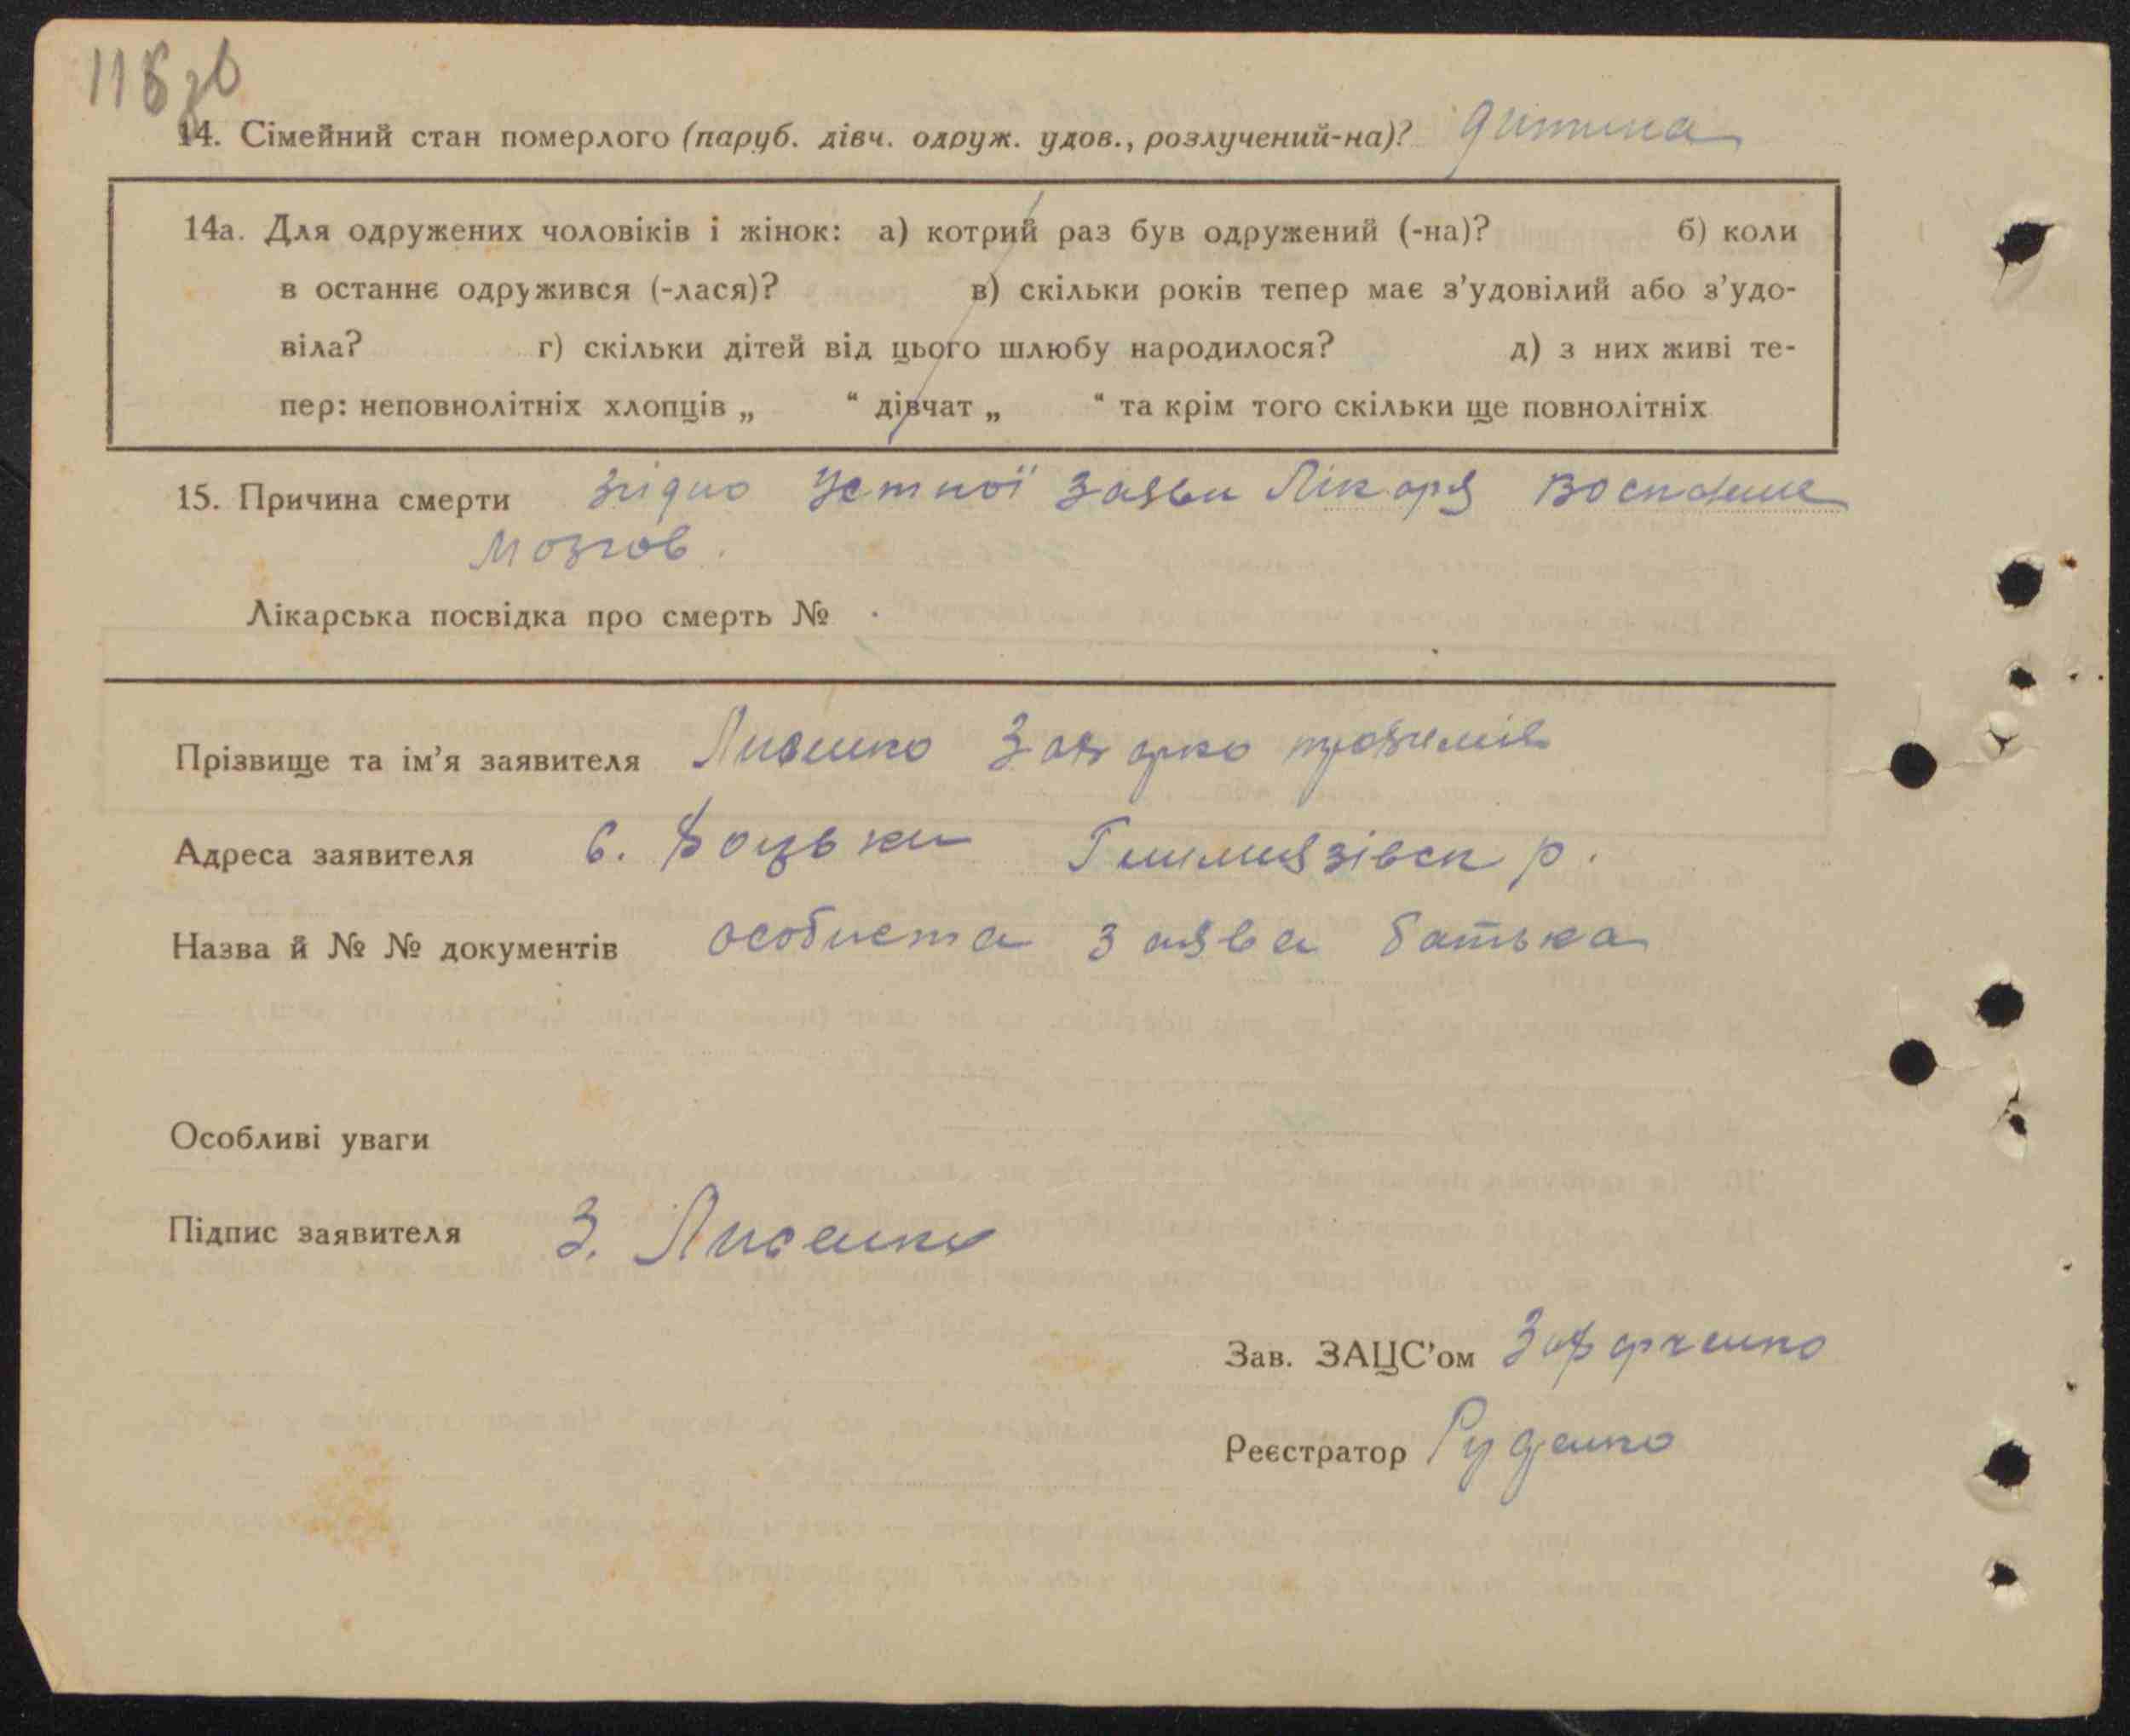 118 зв
14. Сімейний стан померлого (паруб. дівч. одруж. удов., розлучений-на)? дитина
14а. Для одружених чоловіків і жінок: а) котрий раз був одружений (-на)? б) коли
в останнє одружився (-лася)? в) скільки років тепер має з’удовілий або з’удо-
віла? г) скільки дітей від цього шлюбу народилося? д) з них живі те-
пер: неповнолітніх хлопців „ “ дівчат „ “ та крім того скільки ще повнолітніх
15. Причина смерти згідно устної заяви Лікаря
мозгов.
Лікарська посвідка про смерть №
Прізвище та ім’я заявителя Лисенко Захарко
Адреса заявителя с. Боцьки Гельмязівск р.
Назва й № № документів особиста заява батька
Особливі уваги
Підпис заявителя З. Лисенко
Зав. ЗАЦС’ом Захарченко
Реєстратор Руденко